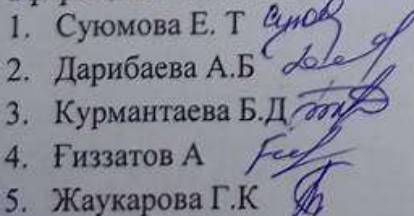 1. Суюмова Е. Т
2. Дарибаева А.Б
3. Курмантаева Б.Д
4. Ғиззатов А
5. Жаукарова Г.К